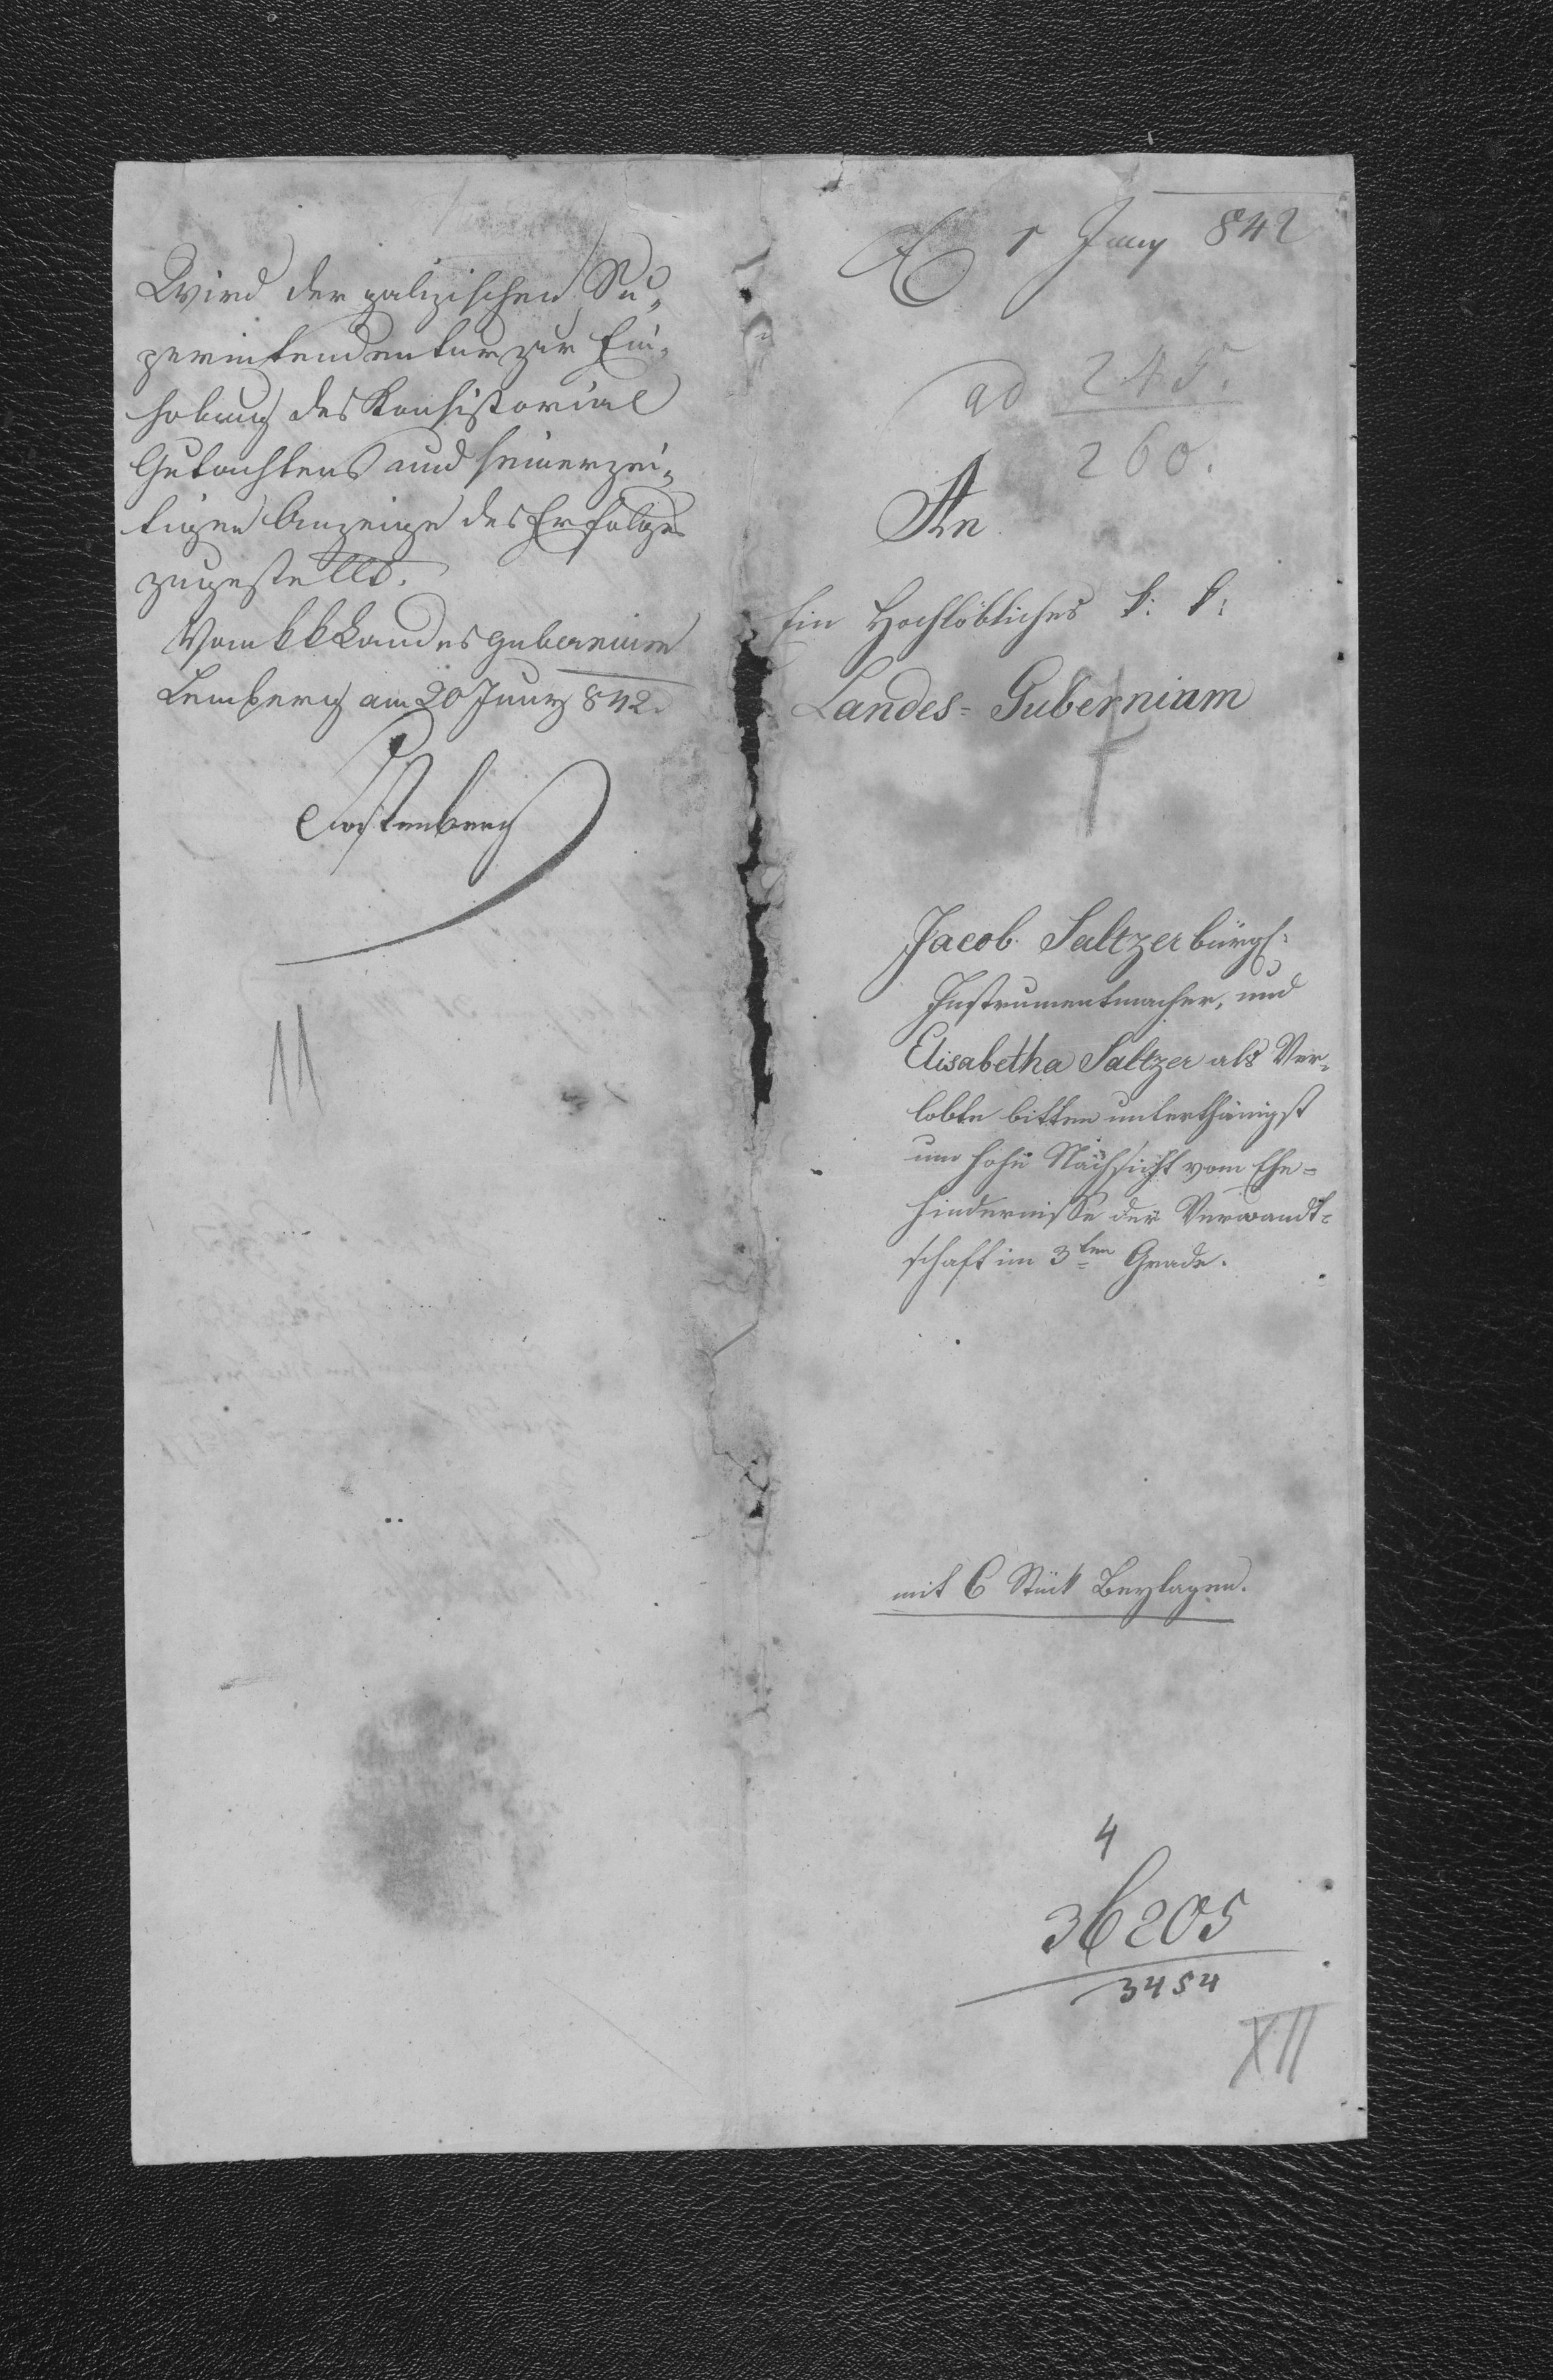 Wird der galizischen Su-
perintendentur zur Ein-
holung des Konsistorial
Gutachtens und seinerzei-
tigen Anzeige des Erfolges
zugestellt.
Vom k k Landesgubernium
Lemberg am 20 Juny 842.
11
1 Juny 842
ad 245.
260.
An
Ein Hochlöbliches k: k:
Landes-Gubernium
Jacob Saltzer bürgl:
Instrumentmacher, und
Elisabetha Saltzer als Ver-
lobte bitten unterthänigst
um hohe Nachsicht vom Ehe-
hindernisse der Verwandt-
schaft im 3ten Grade.
mit 6 Stück Beylagen.
4
36205
3454
XII